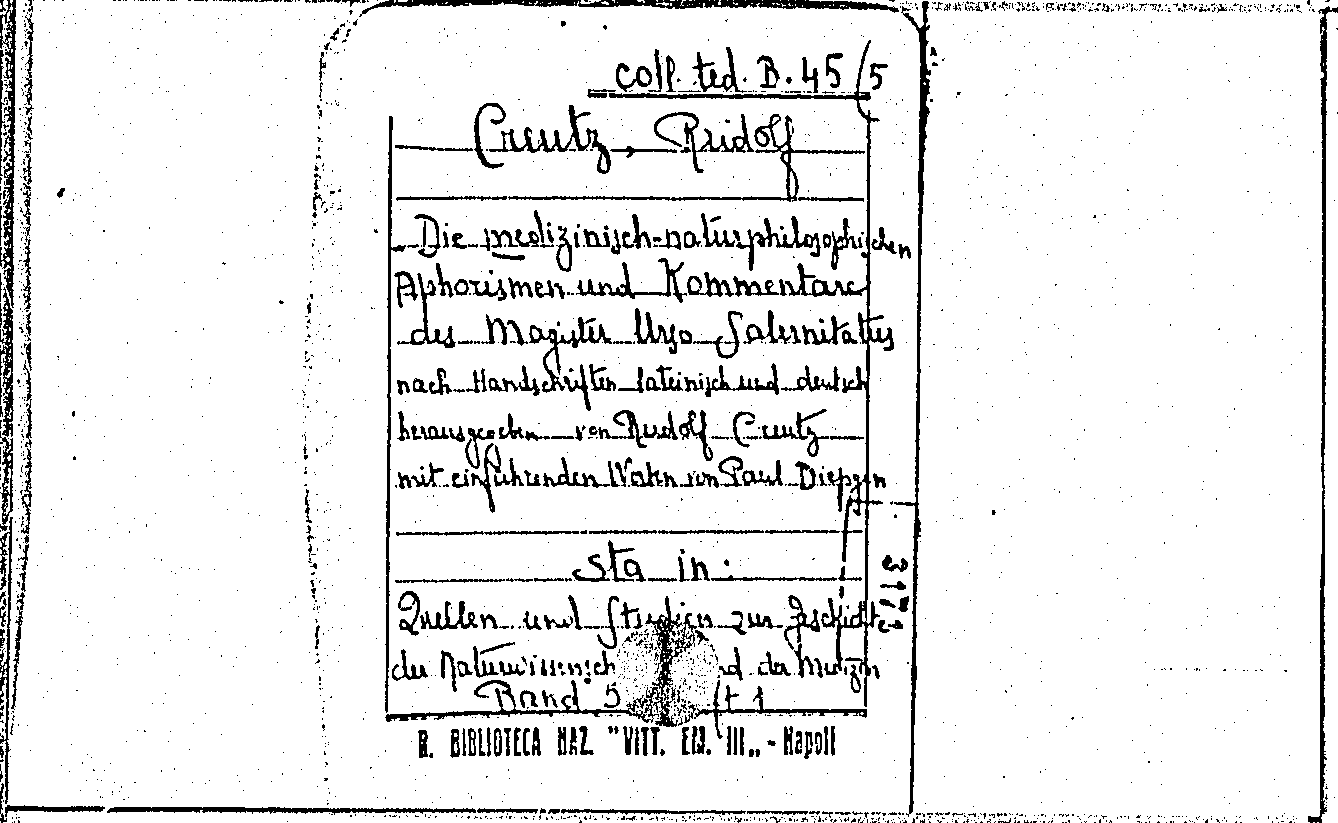 coll. ted. B. 45/5
Creutz, Rudolf
Die medizinisch-naturphilosophischen
Aphorismen und Kommentare
des Magister Urso Salernitatus
nach Handschriften lateinisch und deutsch
herausgegeben von Rudolf Creutz
mit einführenden von Paul Diepgen
sta in:
Quellen und Studien zur Geschicht
der Naturwissensch nd der Medizin
Band 5 t 1
R. BIBLIOTECA NAZ. "VITT. EM. III„ - Napoli